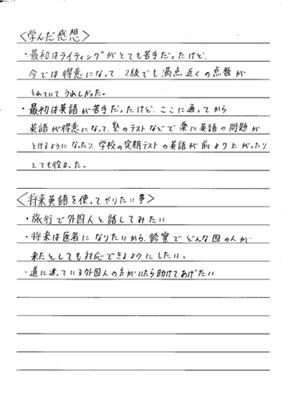 〈学んだ感想〉
・最初はライティングがとても苦手だったけど、
今では得意になって、2級でも満点近くの点数が
とれていてうれしかった。
・最初は英語が苦手だったけど、ここに通ってから
英語が得意になって、塾のテストなどで楽に英語の問題が
とけるようになったり、学校の定期テストの英語が前より上がったり
とても役立った。
〈将来英語を使ってやりたい事〉
・旅行で外国人と話してみたい
・将来は医者になりたいから、診室でどんな国の人が
来たとしても対応できるようにしたい。
・道に迷っている外国人の方がいたら助けてあげたい